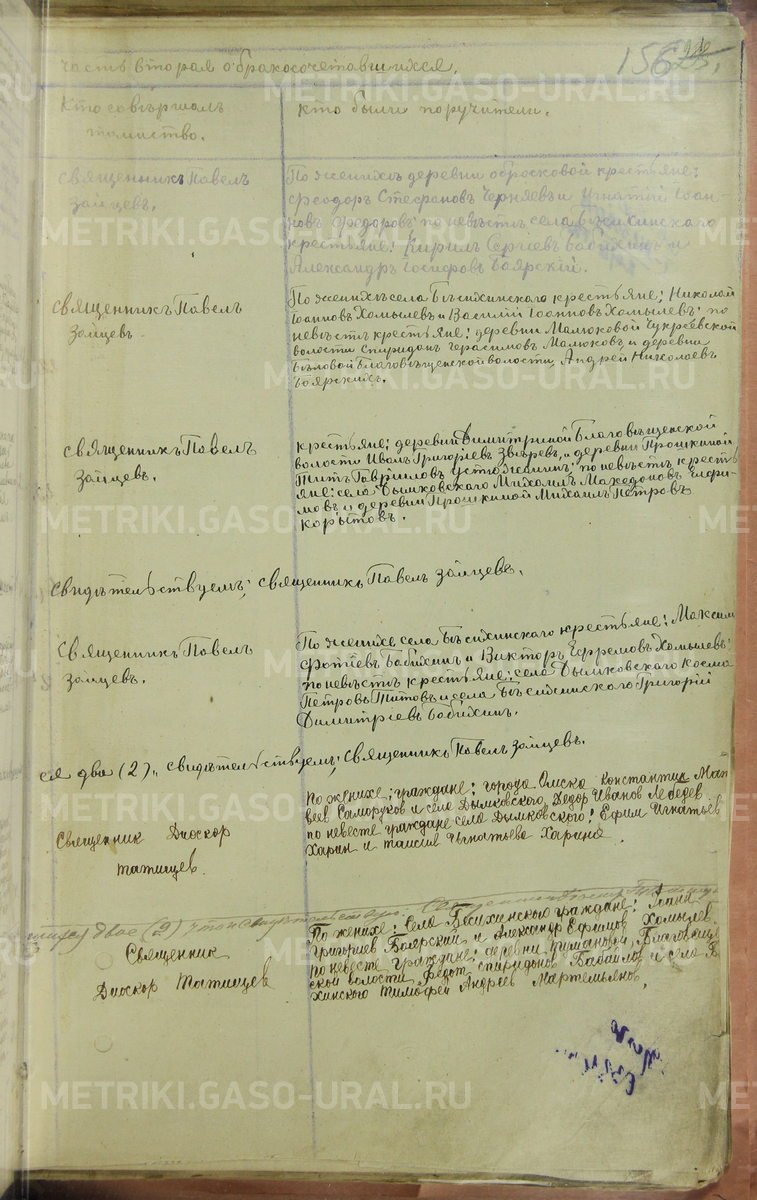 Часть вторая о бракосочетавшихся.
156
Кто совершалъ
таинство.
кто были поручители.
Священникъ Павелъ
Зайцевъ.
По женихѣ деревни Обросковой крестьяне:
Феодоръ Стефановъ Черняевъ и Игнатій Іоан-
новъ Федоровъ; по невѣстѣ села Бѣсихинскаго
крестьяне: Кирилъ Сергіевъ Бабихинъ и
Александръ Іосифовъ Боярскій.
Священникъ Павелъ
Зайцевъ.
По женихѣ села Бѣсихинскаго крестьяне: Николай
Іоанновъ Хомылевъ и Василій Іоанновъ Хомылевъ; по
невѣстѣ крестьяне: деревни Малюковой Чукреевской
волости Спиридонъ Герасимовъ Малюковъ и деревни
Бѣловой Благовѣщенской волости, Андрей Николаевъ
Боярскихъ.
Священникъ Павелъ
Зайцевъ.
крестьяне: деревни Димитріной Благовѣщенской
волости Иванъ Григоріевъ Звѣревъ, и деревни Прошкиной
Титъ Гавриловъ Устюжанинъ; по невѣстѣ кресть-
яне: села Дымковскаго Михаилъ Македоновъ
мовъ и деревни Прошкиной Михаилъ Петровъ
Корытовъ.
Свидѣтельствуемъ; священникъ Павелъ Зайцевъ.
Священникъ Павелъ
Зайцевъ.
По женихе села Бѣсихинскаго крестьяне: Максим
Фотіевъ Бабихинъ и Викторъ Ефремовъ Хомылевъ;
по невѣстѣ крестьяне: села Дымковскаго Косма
Петровъ Титовъ и села Бѣсихинскаго Григорій
Димитріевъ Бабихинъ.
ся два (2), свидѣтельствуемъ; священникъ Павелъ Зайцевъ.
Священник Диоскор
Татищев.
По женихе; граждане: города Омска Константин Мат
веев Саморуков и села Дымковского Федор Иванов Лебедев
по невесте граждане села Дымковского: Ефим Игнатьев
Харин и Таисия Игнатьева Харина.
двое (2)
Священник
Диоскор Татищев
По женихе: Села Бесихинского граждане: Иоанн
Григориев Боярский и Александр Ефимов Хомылев
по невесте граждане: деревни Благовеще
ской волости Федот Спиридонов Бабаилов и села Б
хинского Тимофей Андреев Мартемьянов.
METRIKI.GASO-URAL.RU